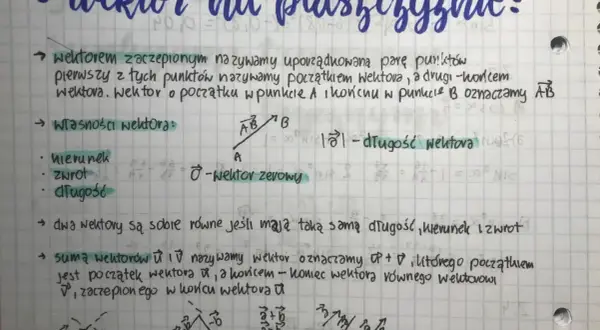 • wektor na płaszczyźnie:
→ wektorem zaczepionym nazywamy uporządkowaną parę punktów
pierwszy z tych punktów nazywamy początkiem wektora, a drugi - końcem
wektora. Wektor o początku w punkcie A i końcu w punkcie B oznaczamy A⃗B⃗
→ własności wektora:
A⃗B⃗ B
A
|a⃗| - długość wektora
• kierunek
• zwrot
• długość
0⃗ - wektor zerowy
→ dwa wektory są sobie równe jeśli mają taką samą długość, kierunek i zwrot
→ sumą wektorów u⃗ i v⃗ nazywamy wektor oznaczamy u⃗ + v⃗, którego początkiem
jest początek wektora u⃗, a końcem - koniec wektora równego wektorowi
v⃗, zaczepionego w końcu wektora u⃗
a⃗+b⃗